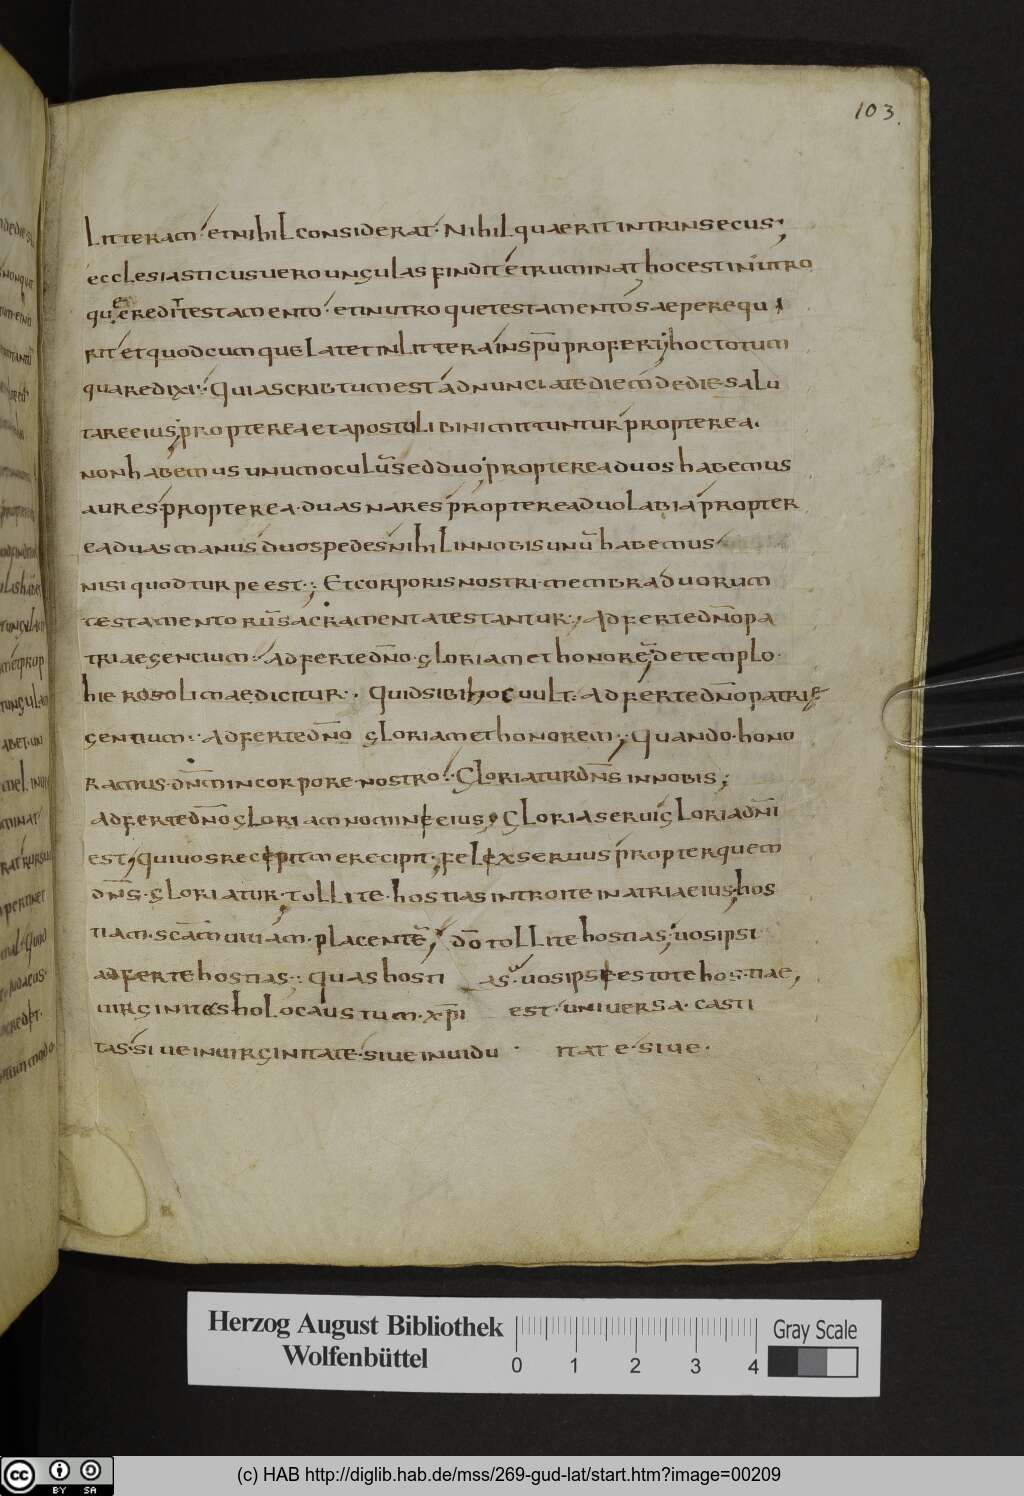 103.
litteram et nihil considerat. Nihil quaerit intrinsecus;
ecclesiasticus uero ungulas findit et ruminat hoc est in utro
que credit testamento. et in utroque testamento saepe requi
rit et quod cumque latet in littera in sp̄u profert; hoc totum
quare dixi. Quia scribtum est adnunciate diem de die salu
tare eius; propterea et apostoli bini mittuntur propterea.
non habemus unum oculū sed duo; propterea duos habemus
aures propterea. duas nares propterea duo labia propter
ea duas manus duos pedes nihil in nobis unū habemus
nisi quod turpe est; Et corporis nostri membra duorum
testamentorū sacramenta testantur; Adferte dn̄o pa
triae gencium. Adferte dn̄o. gloriam et honorē; de templo.
hierosolimae dicitur. Quid sibi hoc uult. Adferte dn̄o patrię
gentium. Adferte dn̄o gloriam et honorem; Quando hono
ratus. dn̄m in corpore nostro. Gloriatur dn̄s in nobis;
adferte dn̄o gloriam nomine eius; Gloria serui gloria dn̄i
est; qui uos recepit me recipit; felex seruus propter quem
dn̄s. gloriatur. tollite. hostias introite in atria eius; hos
tiam. scām uiuam. placentē; dō tollite hostias; uos ipsi
adferte hostias; quas hosti as. uos ipse estote hostiae,
uirginites holocaustum. xp̄i est. uniuersa. casti
tas. siue in uirginitate. siue in uidu itate. siue.
Herzog August Bibliothek
Wolfenbüttel
0 1 2 3 4
Gray Scale
cc BY SA
(c) HAB http://diglib.hab.de/mss/269-gud-lat/start.htm?image=00209